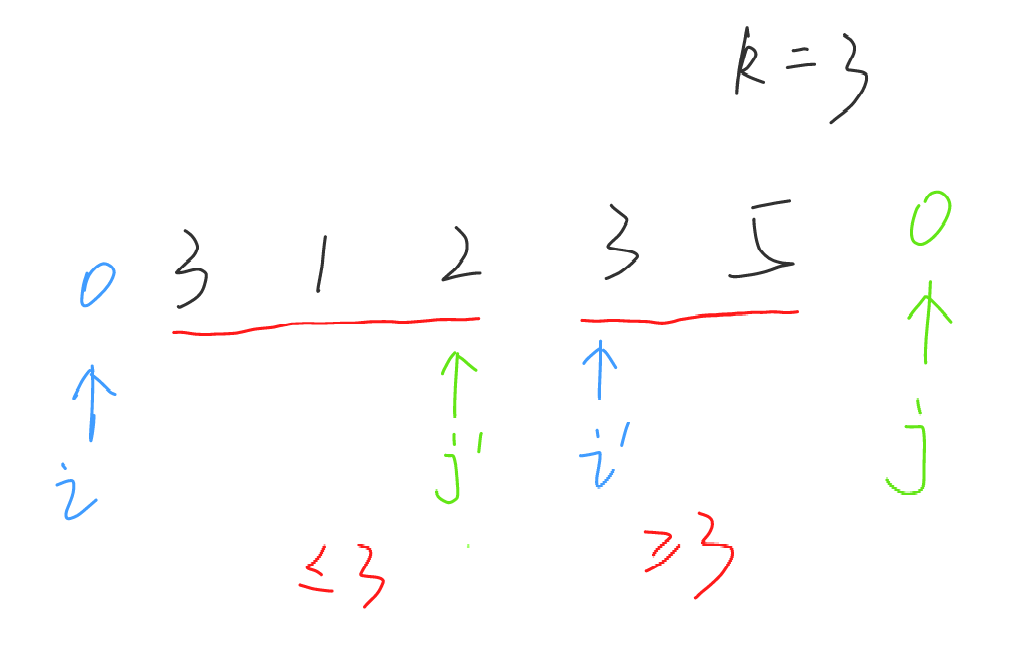 k = 3
0 3 1 2 3 5 0
i j' i' j
≤3 ≥3